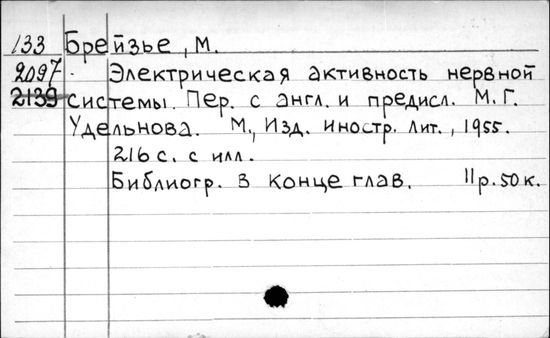 133 Брейзье, М.
2097 Электрическая активность нервной
2139 системы. Пер. с англ. и предисл. М. Г.
Удельнова. М., Изд. иностр. лит., 1955.
216 с. с илл.
Библиогр. в конце глав. 11 р. 50 к.